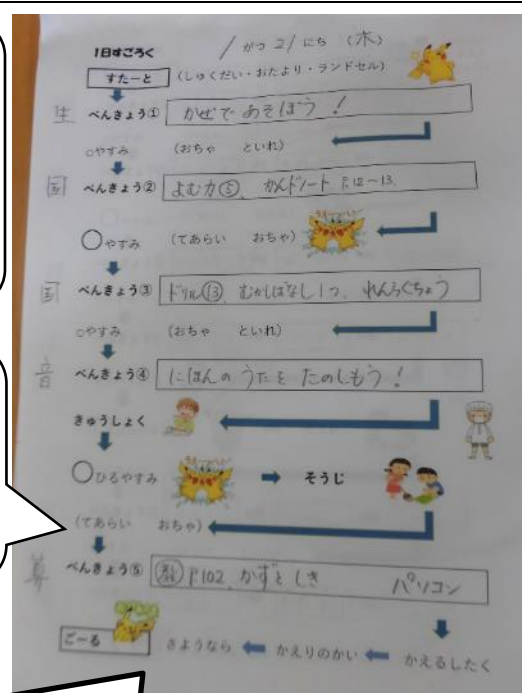 1日すごろく 1がつ21にち(水)
すたーと (しゅくだい・おたより・ランドセル)
生 べんきょう① かぜであそぼう!
○やすみ (おちゃ といれ)
国 べんきょう② よむ力⑤、かんドノート P.12~13.
○やすみ (てあらい おちゃ)
国 べんきょう③ ドリル⑬、むかしばなし1つ、れんらくちょう
○やすみ (おちゃ といれ)
音 べんきょう④ にほんのうたをたのしもう!
きゅうしょく
○ひるやすみ そうじ
(てあらい おちゃ)
算 べんきょう⑤ 教 P102、かずとしき パソコン
ごーる さようなら かえりのかい かえるしたく